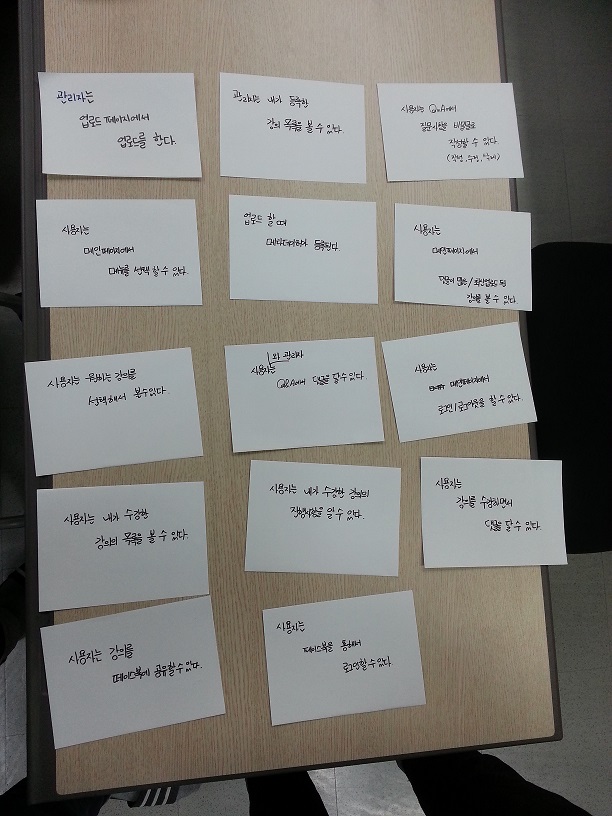 관리자는
업로드 페이지에서
업로드를 한다.
관리자는 내가 등록한
강의 목록을 볼 수 있다.
사용자는 QnA에서
질문사항을 비밀글로
작성할 수 있다
(작성, 수정, 삭제)
사용자는
메인페이지에서
메뉴를 선택 할 수 있다.
업로드 할 때
메타데이터가 등록된다.
사용자는
메인페이지에서
댓글이 많은/최신업로드 된
강의를 볼 수 있다.
사용자는 원하는 강의를
선택해서 볼수있다.
와 관리자
사용자는
Q&A에서 댓글을 달 수 있다.
사용자는
메인페이지에서
로그인/로그아웃을 할 수 있다.
사용자는 내가 수강한
강의의 목록을 볼 수 있다.
사용자는 내가 수강한 강의의
진행사항을 알 수 있다.
사용자는
강의를 수강하면서
댓글을 달 수 있다.
사용자는 강의를
페이스북에 공유할 수 있다.
사용자는
페이스북을 통해서
로그인할 수 있다.